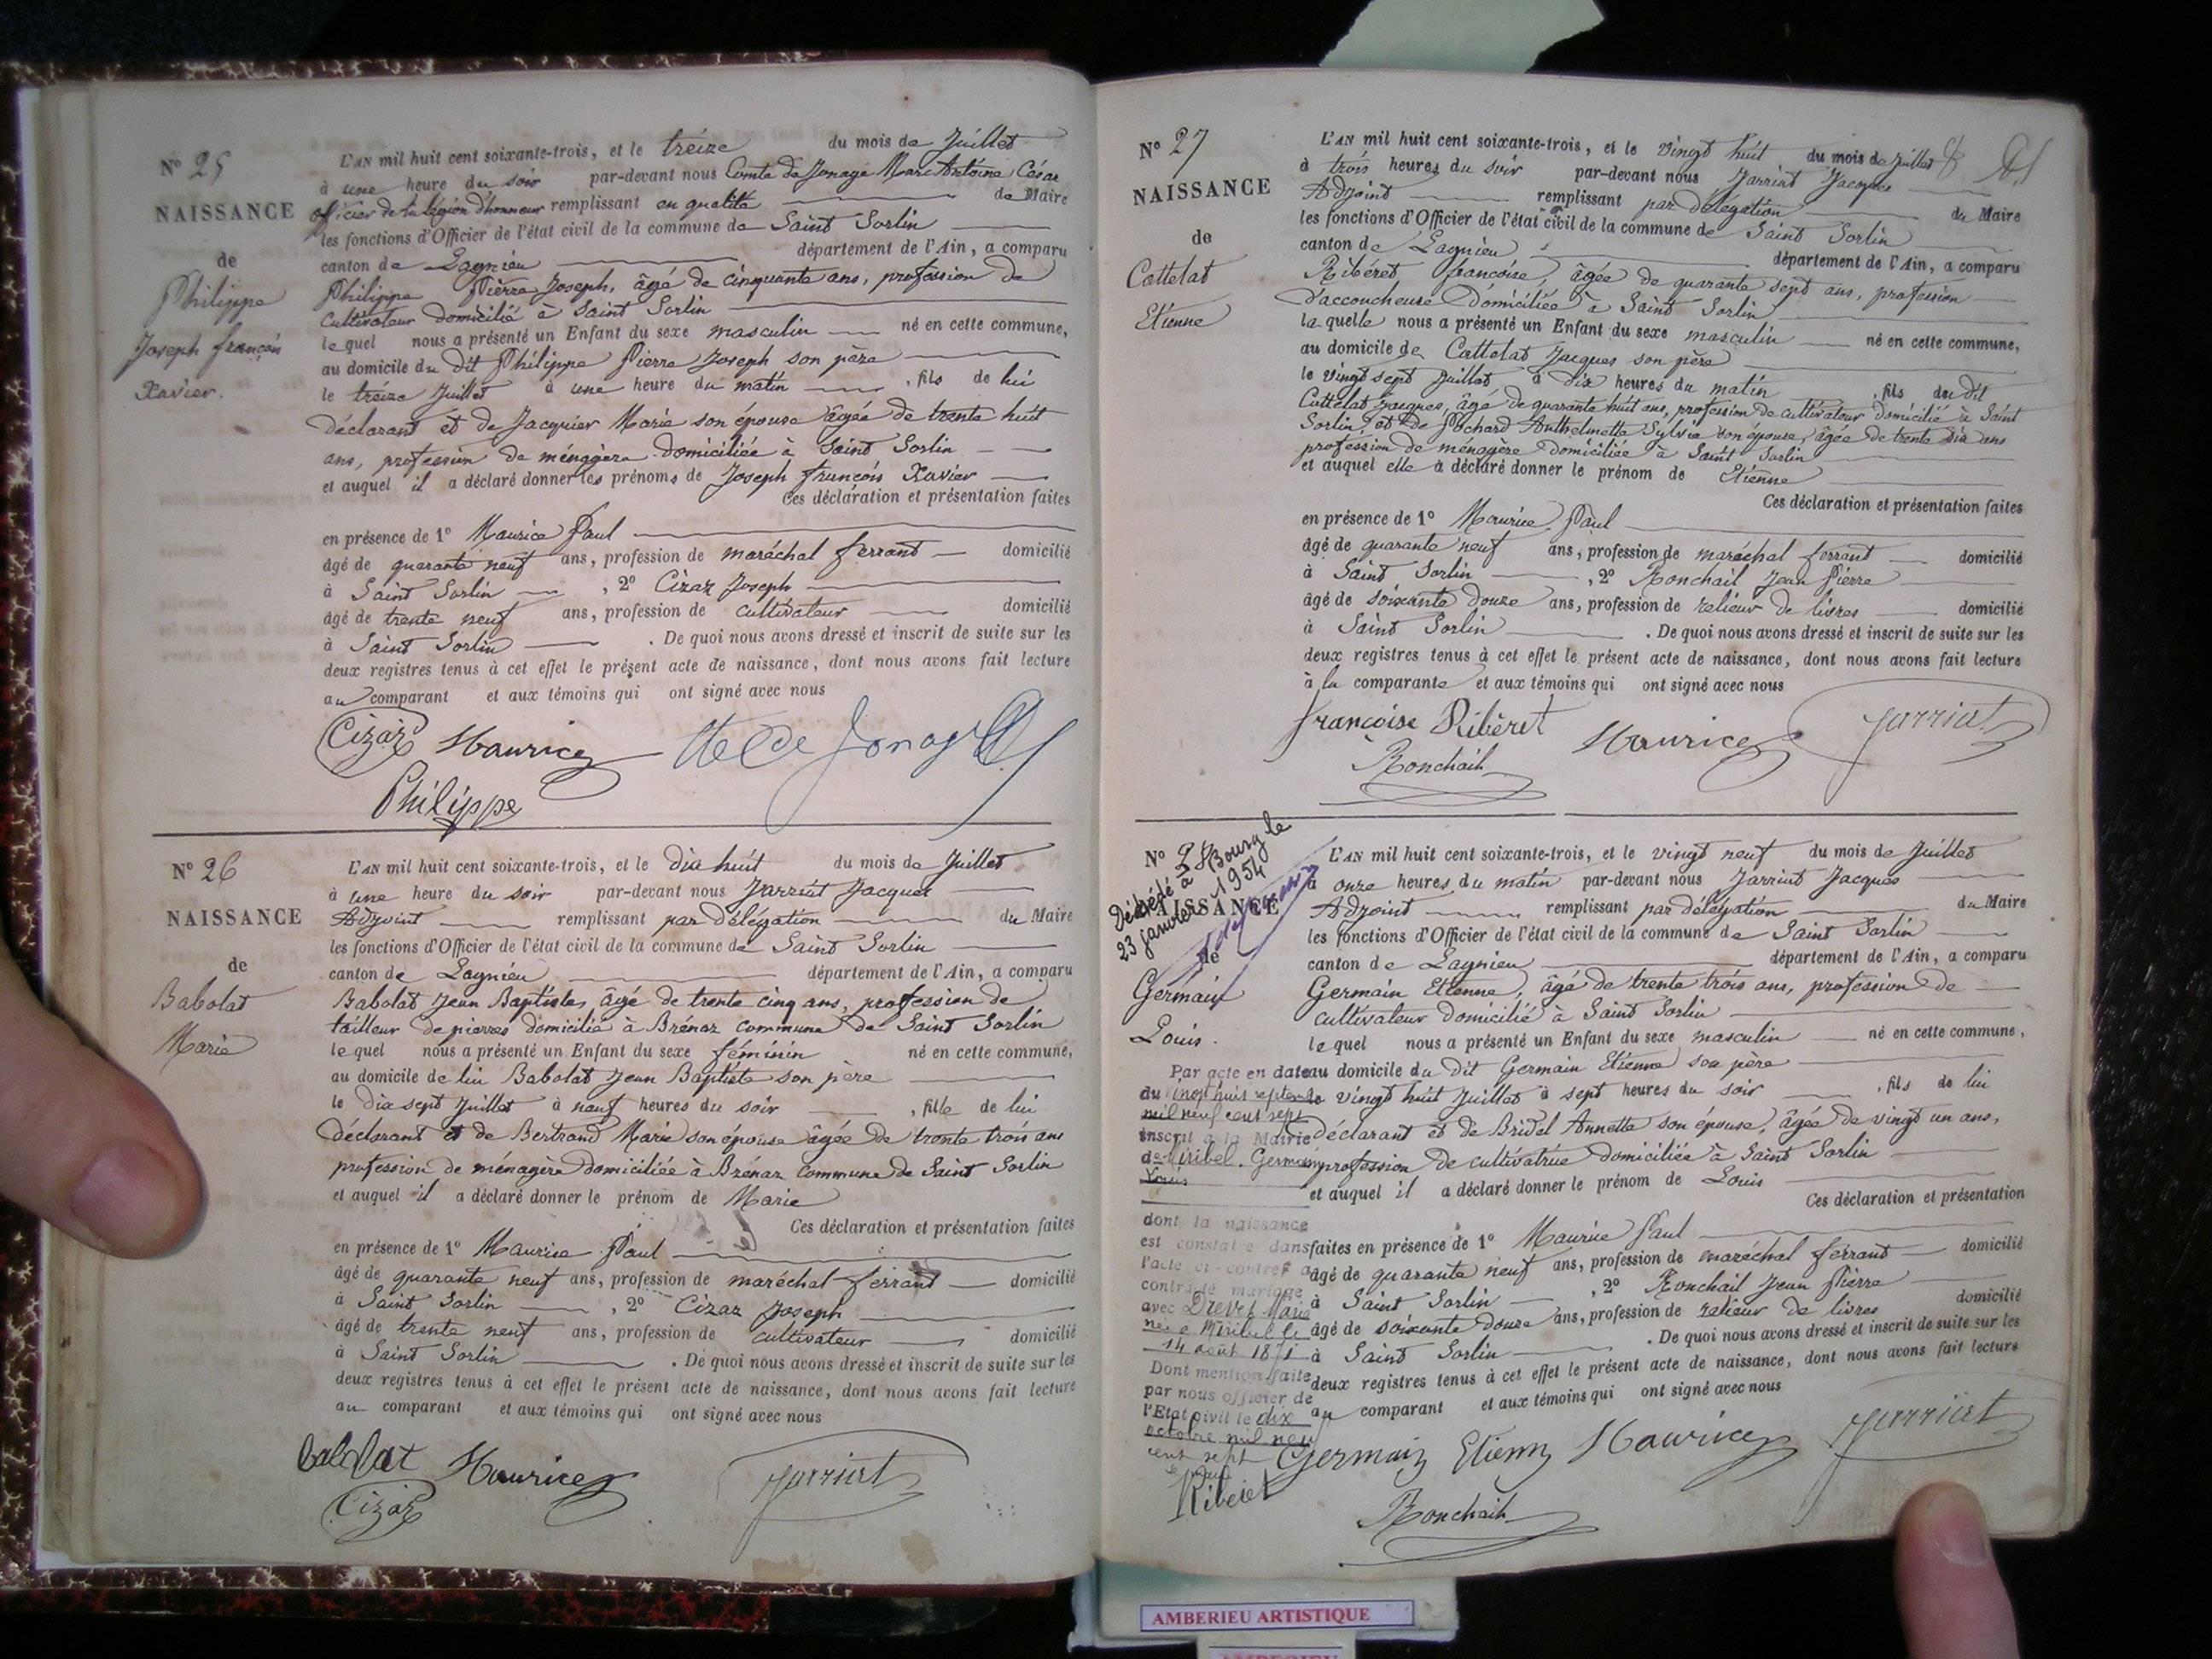 N° 25
NAISSANCE
de
Philippe
Joseph françois
Xavier.
L'AN mil huit cent soixante-trois, et le treize du mois de Juillet
à une heure du soir par-devant nous Comte de Jonage Marc Antoine César
officier de la légion d'honneur remplissant en qualité de Maire
les fonctions d'Officier de l'état civil de la commune de Saint Sorlin
canton de Lagnieu département de l'Ain, a comparu
Philippe Pierre Joseph, âgé de cinquante ans, profession de
Cultivateur domicilié à Saint Sorlin
lequel nous a présenté un Enfant du sexe masculin né en cette commune,
au domicile du dit Philippe Pierre Joseph son père
le treize Juillet à une heure du matin , fils de lui
déclarant et de Jacquier Marie son épouse âgée de trente huit
ans, profession de ménagère domiciliée à Saint Sorlin
et auquel il a déclaré donner les prénoms de Joseph françois Xavier
Ces déclaration et présentation faites
en présence de 1° Maurice Paul
âgé de quarante neuf ans, profession de maréchal ferrant domicilié
à Saint Sorlin , 2° Cizaz Joseph
âgé de trente neuf ans, profession de cultivateur domicilié
à Saint Sorlin . De quoi nous avons dressé et inscrit de suite sur les
deux registres tenus à cet effet le présent acte de naissance, dont nous avons fait lecture
au comparant et aux témoins qui ont signé avec nous
Cizaz Maurice de Jonage
Philippe
N° 26
NAISSANCE
de
Babolat
Marie
L'AN mil huit cent soixante-trois, et le dix huit du mois de Juillet
à une heure du soir par-devant nous Jarriut Jacques
Adjoint remplissant par délégation du Maire
les fonctions d'Officier de l'état civil de la commune de Saint Sorlin
canton de Lagnieu département de l'Ain, a comparu
Babolat Jean Baptiste, âgé de trente cinq ans, profession de
tailleur de pierres domicilié à Brénaz commune de Saint Sorlin
lequel nous a présenté un Enfant du sexe féminin né en cette commune,
au domicile de lui Babolat Jean Baptiste son père
le dix sept Juillet à neuf heures du soir , fille de lui
déclarant et de Bertrand Marie son épouse âgée de trente trois ans
profession de ménagère domiciliée à Brénaz commune de Saint Sorlin
et auquel il a déclaré donner le prénom de Marie
Ces déclaration et présentation faites
en présence de 1° Maurice Paul
âgé de quarante neuf ans, profession de maréchal ferrant domicilié
à Saint Sorlin , 2° Cizaz Joseph
âgé de trente neuf ans, profession de cultivateur domicilié
à Saint Sorlin . De quoi nous avons dressé et inscrit de suite sur les
deux registres tenus à cet effet le présent acte de naissance, dont nous avons fait lecture
au comparant et aux témoins qui ont signé avec nous
Babolat Maurice Jarriut
Cizaz
N° 27
NAISSANCE
de
Cattelat
Etienne
L'AN mil huit cent soixante-trois, et le vingt huit du mois de Juillet
à trois heures du soir par-devant nous Jarriut Jacques
Adjoint remplissant par délégation du Maire
les fonctions d'Officier de l'état civil de la commune de Saint Sorlin
canton de Lagnieu département de l'Ain, a comparu
Ribéret françoise, âgée de quarante sept ans, profession
d'accoucheuse domiciliée à Saint Sorlin
la quelle nous a présenté un Enfant du sexe masculin né en cette commune,
au domicile de Cattelat Jacques son père
le vingt sept Juillet à dix heures du matin , fils du dit
Cattelat Jacques, âgé de quarante huit ans, profession de cultivateur domicilié à Saint
Sorlin, et de Pochard Anthelmette Sylvie son épouse, âgée de trente six ans
profession de ménagère domiciliée à Saint Sorlin
et auquel elle a déclaré donner le prénom de Etienne
Ces déclaration et présentation faites
en présence de 1° Maurice Paul
âgé de quarante neuf ans, profession de maréchal ferrant domicilié
à Saint Sorlin , 2° Ronchail Jean Pierre
âgé de soixante douze ans, profession de relieur de livres domicilié
à Saint Sorlin . De quoi nous avons dressé et inscrit de suite sur les
deux registres tenus à cet effet le présent acte de naissance, dont nous avons fait lecture
à la comparante et aux témoins qui ont signé avec nous
Françoise Ribèret Maurice Jarriut
Ronchail
N° 28
NAISSANCE
de
Germain
Louis.
Décédé à Bourg le
23 janvier 1954
L'AN mil huit cent soixante-trois, et le vingt neuf du mois de Juillet
à onze heures du matin par-devant nous Jarriut Jacques
Adjoint remplissant par délégation du Maire
les fonctions d'Officier de l'état civil de la commune de Saint Sorlin
canton de Lagnieu département de l'Ain, a comparu
Germain Etienne, âgé de trente trois ans, profession de
cultivateur domicilié à Saint Sorlin
lequel nous a présenté un Enfant du sexe masculin né en cette commune,
au domicile du dit Germain Etienne son père
le vingt huit Juillet à sept heures du soir , fils de lui
déclarant et de Bridel Annette son épouse, âgée de vingt un ans,
profession de cultivatrice domiciliée à Saint Sorlin
et auquel il a déclaré donner le prénom de Louis
Ces déclaration et présentation
faites en présence de 1° Maurice Paul
âgé de quarante neuf ans, profession de maréchal ferrant domicilié
à Saint Sorlin , 2° Ronchail Jean Pierre
âgé de soixante douze ans, profession de relieur de livres domicilié
à Saint Sorlin . De quoi nous avons dressé et inscrit de suite sur les
deux registres tenus à cet effet le présent acte de naissance, dont nous avons fait lecture
au comparant et aux témoins qui ont signé avec nous
Germain Etienn Maurice Jarriut
Ronchail
Par acte en date
du vingt huit septembre
mil neuf cent sept
inscrit à la Mairie
de Miribel. Germain
Louis
dont la naissance
est constatée dans
l'acte ci-contre a
contracté mariage
avec Drevet Marie
née à Miribel le
14 août 1871
Dont mention faite
par nous officier de
l'Etat civil le dix
octobre mil neuf
cent sept
Ribéret
AMBERIEU ARTISTIQUE